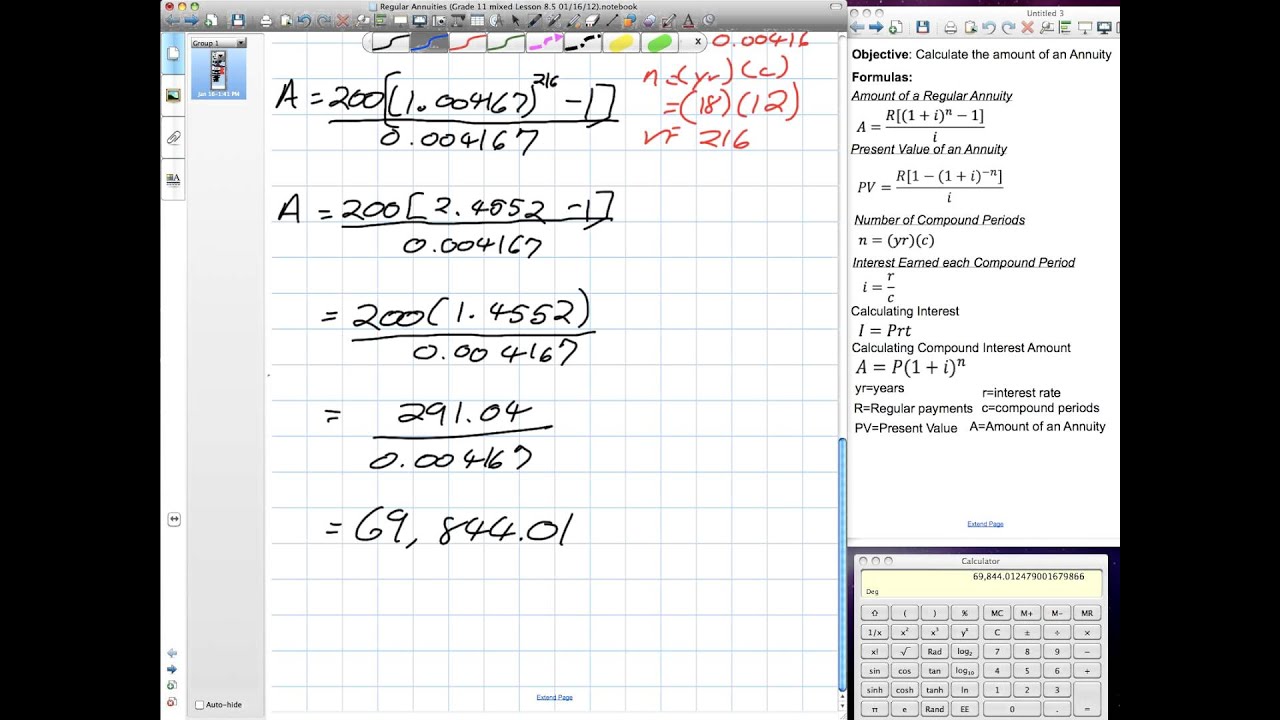 Regular Annuities (Grade 11 mixed Lesson 8.5 01/16/12).notebook
Group 1
Jan 16-1:41 PM
x
0.00416
A = 200[(1.004167)^216 - 1]
0.004167
n = (yr)(c)
= (18)(12)
n = 216
A = 200[2.4552 - 1]
0.004167
= 200(1.4552)
0.004167
= 291.04
0.004167
= 69,844.01
Extend Page
Auto-hide
Untitled 3
Objective: Calculate the amount of an Annuity
Formulas:
Amount of a Regular Annuity
A = R[(1 + i)^n − 1]
i
Present Value of an Annuity
PV = R[1 − (1 + i)^−n]
i
Number of Compound Periods
n = (yr)(c)
Interest Earned each Compound Period
i = r
c
Calculating Interest
I = Prt
Calculating Compound Interest Amount
A = P(1 + i)^n
yr=years
r=interest rate
R=Regular payments c=compound periods
PV=Present Value A=Amount of an Annuity
Extend Page
Calculator
69,844.012479001679866
Deg
( ) % MC M+ M- MR
1/x x² x³ yˣ C ± ÷ ×
x! √ Rad log₂ 7 8 9 −
sin cos tan log₁₀ 4 5 6 +
sinh cosh tanh ln 1 2 3
π e Rand EE 0 . =